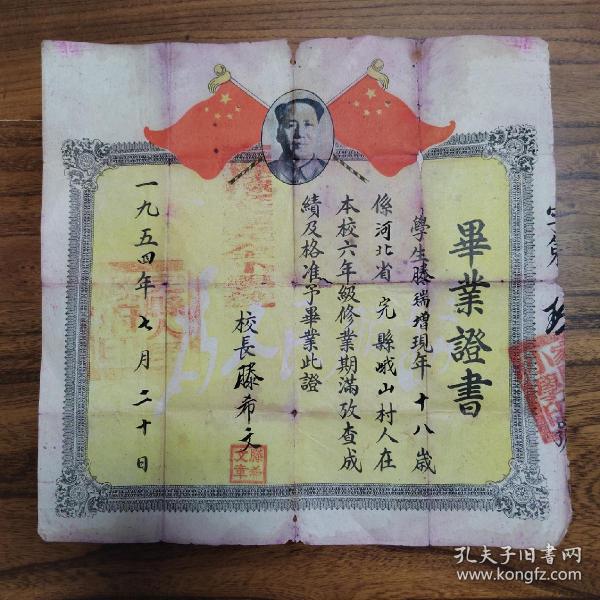 畢業證書
學生滕瑞增現年十八歲
係河北省完縣峨山村人在
本校六年級修業期滿攷查成
績及格准予畢業此證
校長滕希文
一九五四年七月二十日
字第
孔夫子旧书网
www.kongfz.com